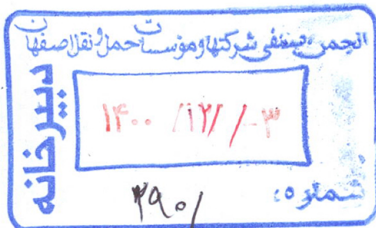 انجمن صنفی شرکتها و مؤسسات حمل و نقل اصفهان
دبیرخانه
۱۴۰۰ /۱۲/ ۰۳
شماره: